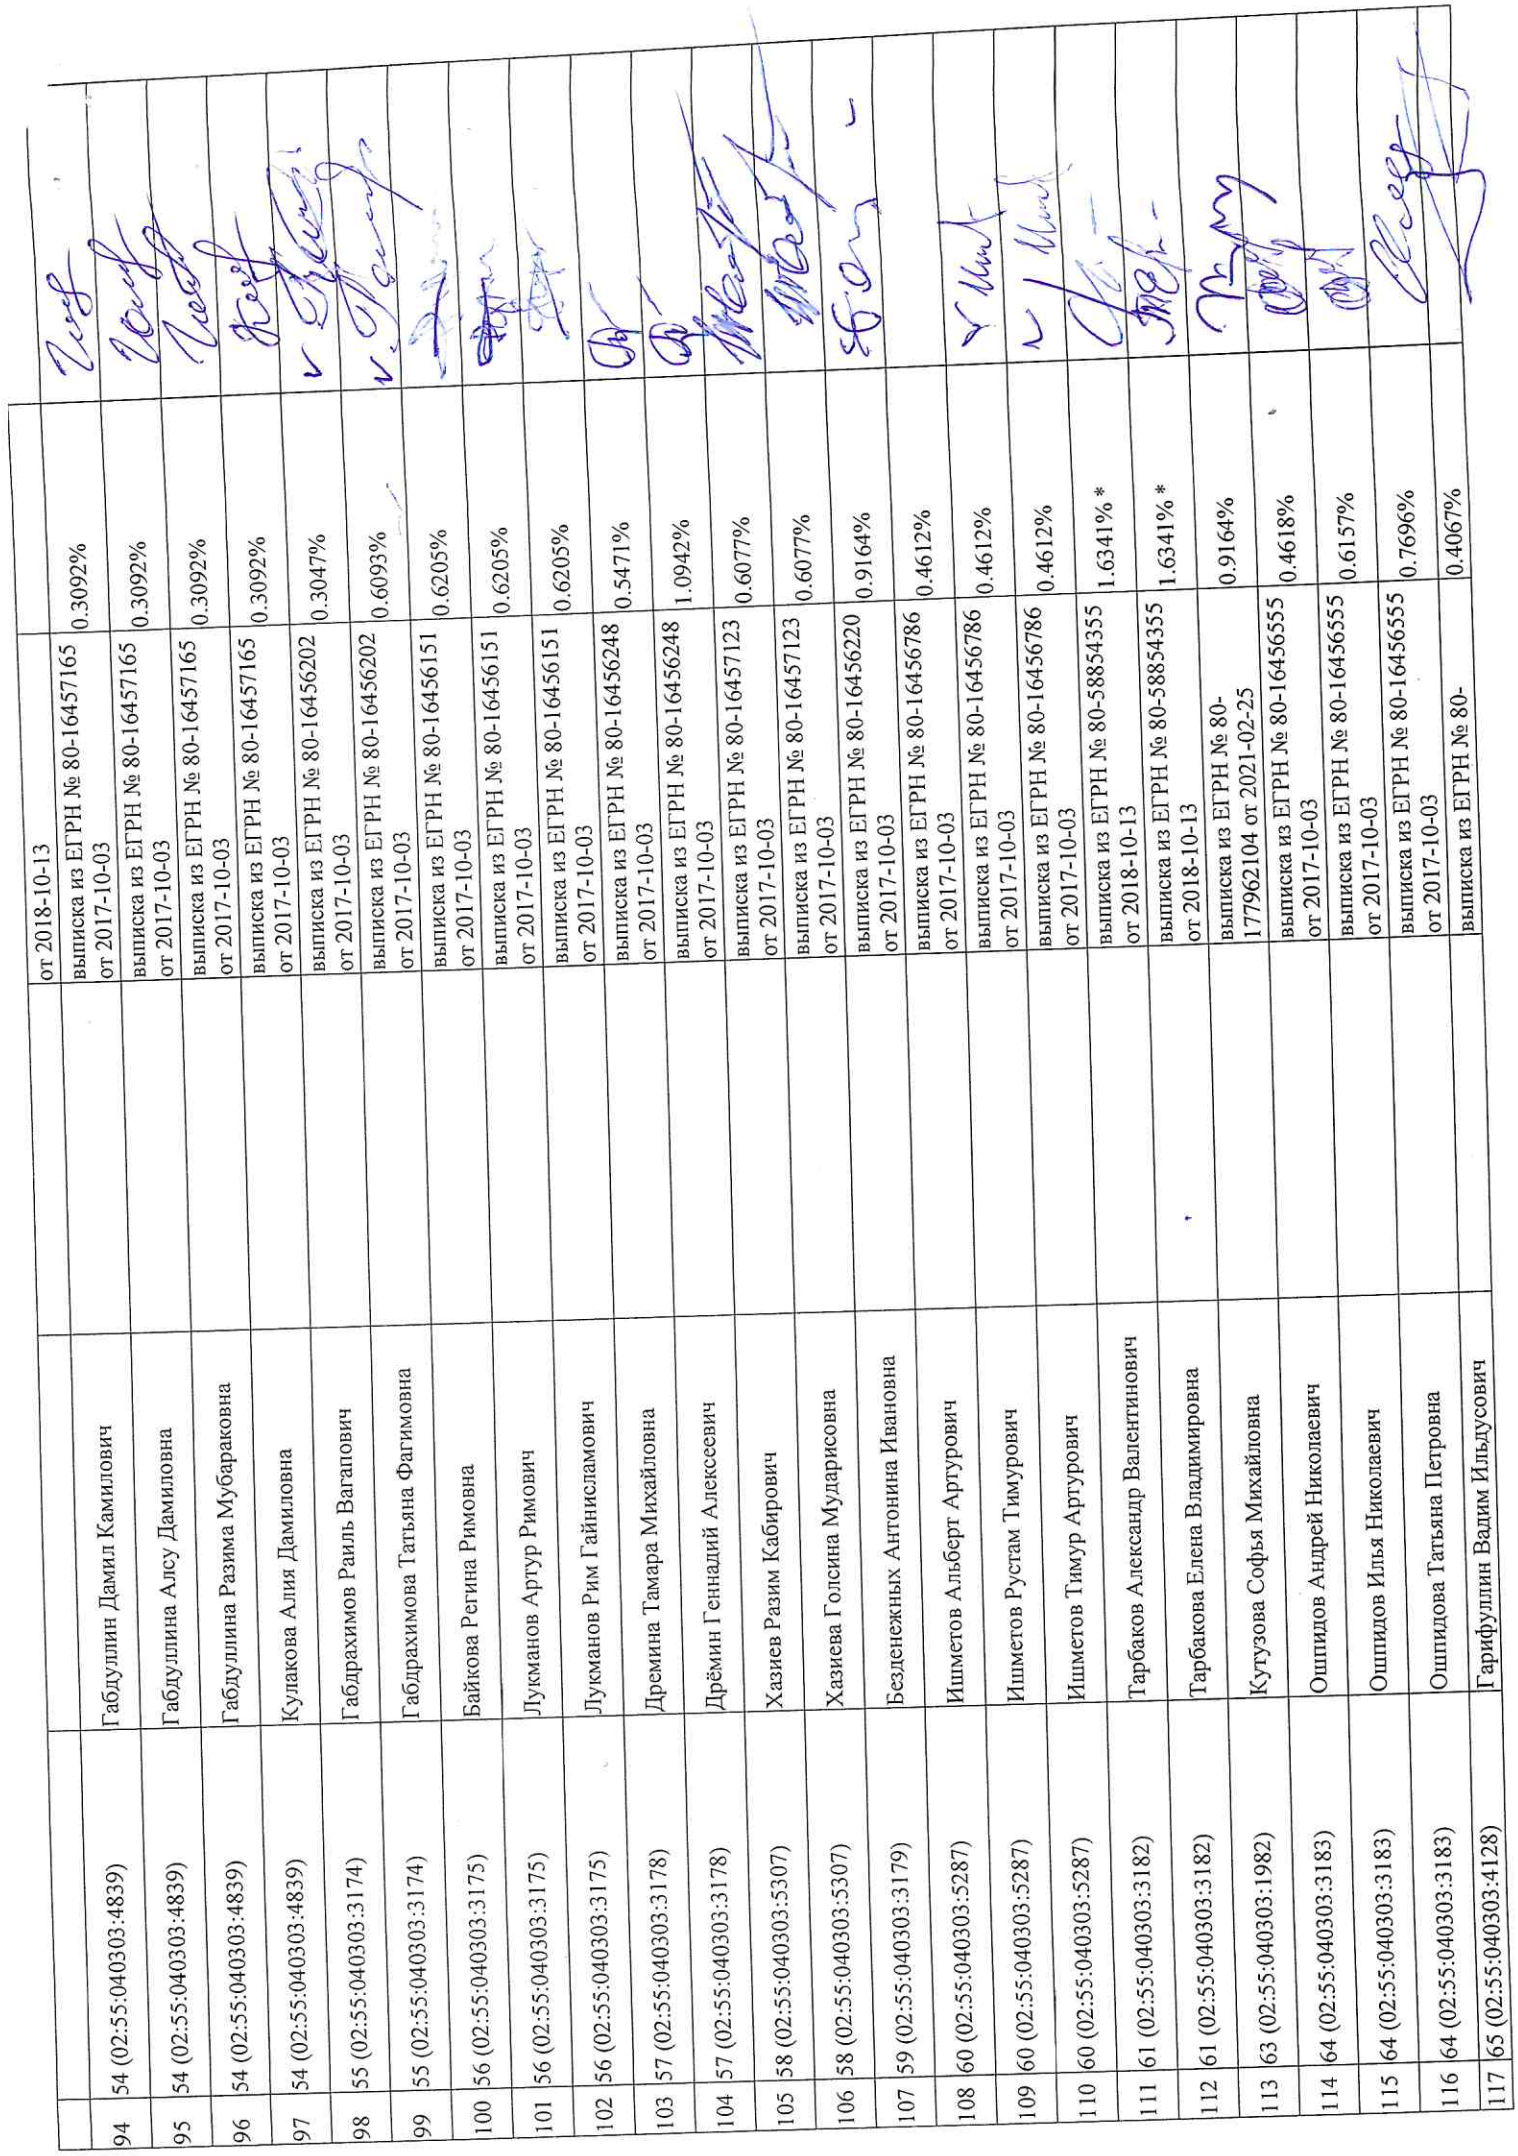 от 2018-10-13
94 54 (02:55:040303:4839) Габдуллин Дамил Камилович выписка из ЕГРН № 80-16457165 0.3092%
от 2017-10-03
95 54 (02:55:040303:4839) Габдуллина Алсу Дамиловна выписка из ЕГРН № 80-16457165 0.3092%
от 2017-10-03
96 54 (02:55:040303:4839) Габдуллина Разима Мубараковна выписка из ЕГРН № 80-16457165 0.3092%
от 2017-10-03
97 54 (02:55:040303:4839) Кулакова Алия Дамиловна выписка из ЕГРН № 80-16457165 0.3092%
от 2017-10-03
98 55 (02:55:040303:3174) Габдрахимов Раиль Вагапович выписка из ЕГРН № 80-16456202 0.3047%
от 2017-10-03
99 55 (02:55:040303:3174) Габдрахимова Татьяна Фагимовна выписка из ЕГРН № 80-16456202 0.6093%
от 2017-10-03
100 56 (02:55:040303:3175) Байкова Регина Римовна выписка из ЕГРН № 80-16456151 0.6205%
от 2017-10-03
101 56 (02:55:040303:3175) Лукманов Артур Римович выписка из ЕГРН № 80-16456151 0.6205%
от 2017-10-03
102 56 (02:55:040303:3175) Лукманов Рим Гайнисламович выписка из ЕГРН № 80-16456151 0.6205%
от 2017-10-03
103 57 (02:55:040303:3178) Дремина Тамара Михайловна выписка из ЕГРН № 80-16456248 0.5471%
от 2017-10-03
104 57 (02:55:040303:3178) Дрёмин Геннадий Алексеевич выписка из ЕГРН № 80-16456248 1.0942%
от 2017-10-03
105 58 (02:55:040303:5307) Хазиев Разим Кабирович выписка из ЕГРН № 80-16457123 0.6077%
от 2017-10-03
106 58 (02:55:040303:5307) Хазиева Голсина Мударисовна выписка из ЕГРН № 80-16457123 0.6077%
от 2017-10-03
107 59 (02:55:040303:3179) Безденежных Антонина Ивановна выписка из ЕГРН № 80-16456220 0.9164%
от 2017-10-03
108 60 (02:55:040303:5287) Ишметов Альберт Артурович выписка из ЕГРН № 80-16456786 0.4612%
от 2017-10-03
109 60 (02:55:040303:5287) Ишметов Рустам Тимурович выписка из ЕГРН № 80-16456786 0.4612%
от 2017-10-03
110 60 (02:55:040303:5287) Ишметов Тимур Артурович выписка из ЕГРН № 80-16456786 0.4612%
от 2017-10-03
111 61 (02:55:040303:3182) Тарбаков Александр Валентинович выписка из ЕГРН № 80-58854355 1.6341% *
от 2018-10-13
112 61 (02:55:040303:3182) Тарбакова Елена Владимировна выписка из ЕГРН № 80-58854355 1.6341% *
от 2018-10-13
113 63 (02:55:040303:1982) Кутузова Софья Михайловна выписка из ЕГРН № 80- 0.9164%
177962104 от 2021-02-25
114 64 (02:55:040303:3183) Ошпидов Андрей Николаевич выписка из ЕГРН № 80-16456555 0.4618%
от 2017-10-03
115 64 (02:55:040303:3183) Ошпидов Илья Николаевич выписка из ЕГРН № 80-16456555 0.6157%
от 2017-10-03
116 64 (02:55:040303:3183) Ошпидова Татьяна Петровна выписка из ЕГРН № 80-16456555 0.7696%
от 2017-10-03
117 65 (02:55:040303:4128) Гарифуллин Вадим Ильдусович выписка из ЕГРН № 80- 0.4067%